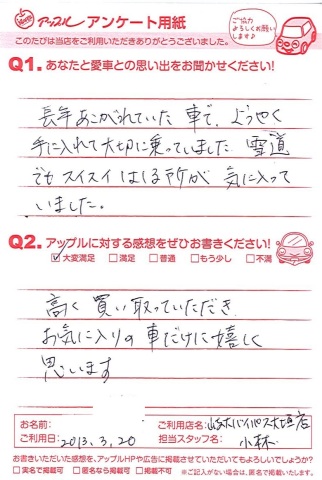 アップル アンケート用紙
ご協力
よろしくお願い
します♪
このたびは当店をご利用いただきありがとうございました。
Q1. あなたと愛車との思い出をお聞かせください!
長年あこがれていた車で、ようやく
手に入れて大切に乗っていました 雪道
でもスイスイはしる所が気に入って
いました。
Q2. アップルに対する感想をぜひお書きください!
☑大変満足 □満足 □普通 □もう少し □不満
高く買い取っていただき
お気に入りの車だけに嬉しく
思います
お名前:
ご利用店名: バイパス大垣店
ご利用日: 2013.3.20
担当スタッフ名: 小林
お書きいただいた感想を、アップルHPや広告に掲載させていただいてもよろしいでしょうか?
□実名で掲載可 □匿名なら掲載可 □掲載不可 ※ご記入がない場合は、匿名で掲載いたします。